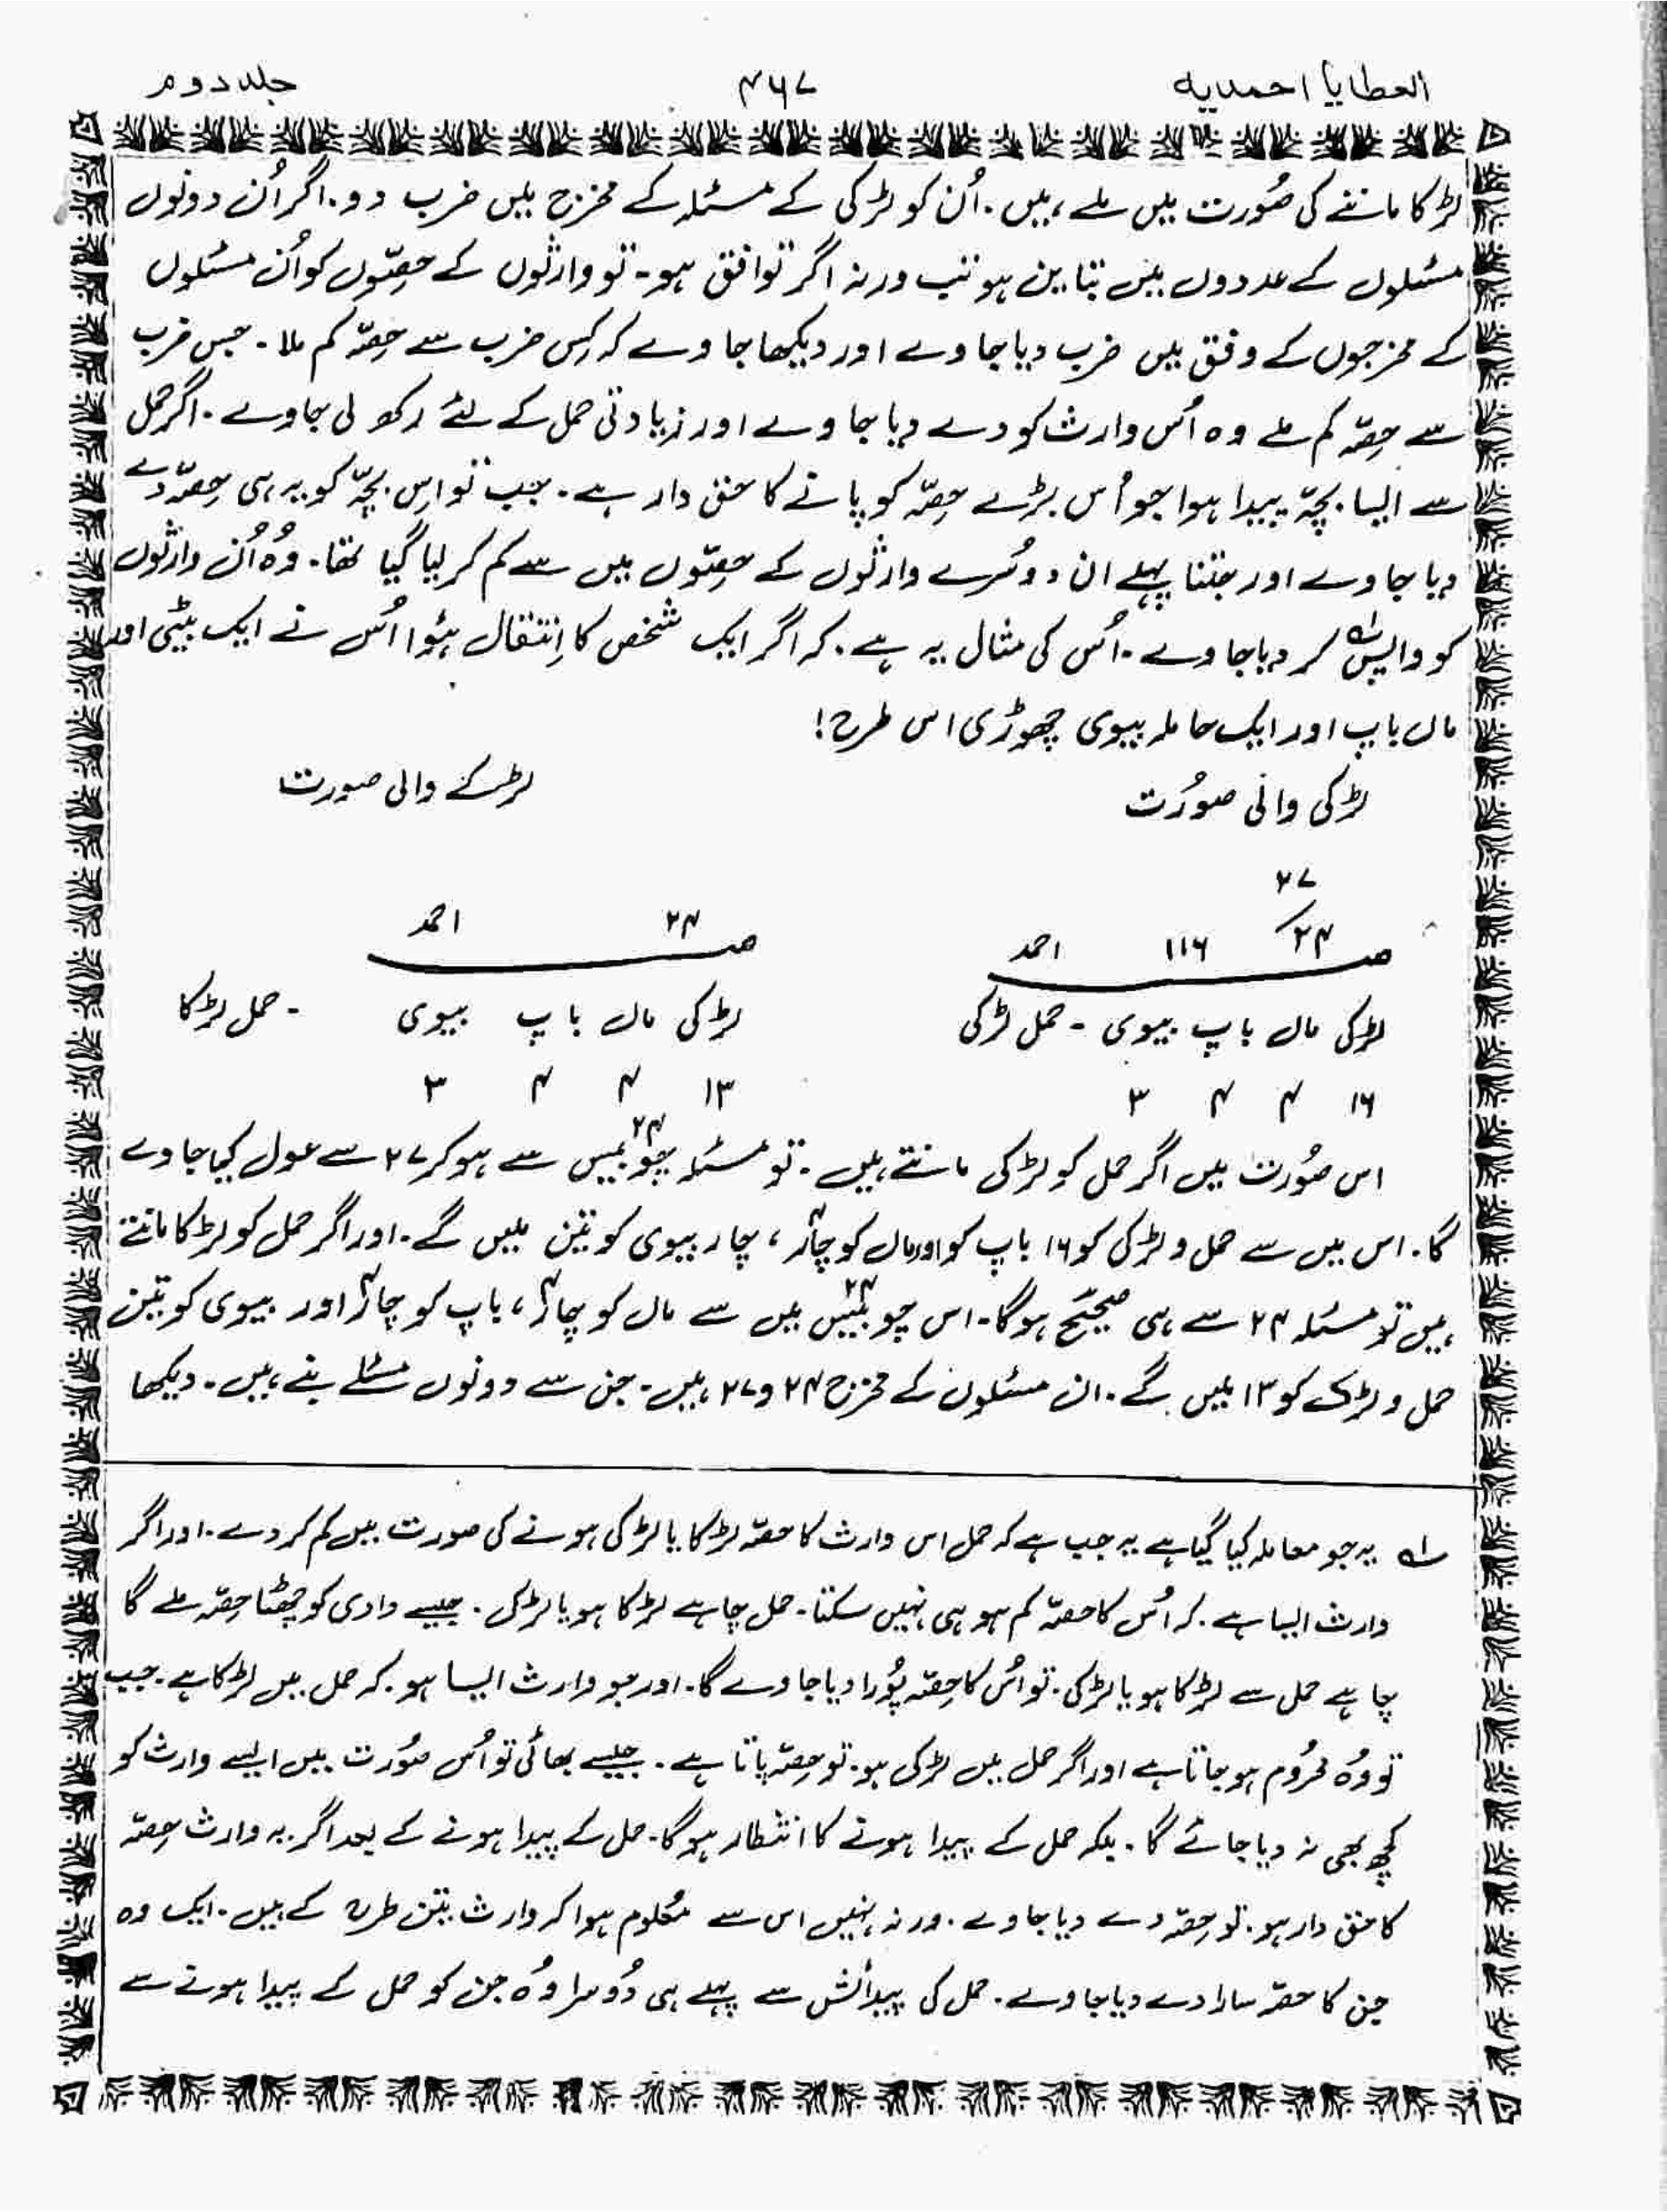 العطایا احمدیہ ۴۶۷ جلد دوم
لڑکا ماننے کی صُورت میں ملے ہیں۔ اُن کو لڑکی کے مسئلہ کے مخرج میں ضرب دو۔ اگر اُن دونوں
مسئلوں کے عددوں میں تباین ہو تب ورنہ اگر توافق ہو۔ تو وارثوں کے حِصّوں کو اُن مسئلوں
کے مخرجوں کے وفق میں ضرب دیا جاوے اور دیکھا جاوے کہ کِس ضرب سے حِصّہ کم ملا۔ جس ضرب
سے حِصّہ کم ملے وہ اُس وارث کو دے دیا جاوے اور زیادتی حمل کے لئے رکھ لی جاوے۔ اگر حمل
سے ایسا بچّہ پیدا ہوا جو اُس بڑے حِصّہ کو پانے کا حق دار ہے۔ جب تو اِس بچّہ کو یہ ہی حِصّہ دے
دیا جاوے اور جتنا پہلے ان دوسُرے وارثوں کے حِصّوں میں سے کم کر لیا گیا تھا۔ وُہ اُن وارثوں
کو واپس۱؎ کر دیا جاوے۔ اُس کی مثال یہ ہے۔ کہ اگر ایک شخص کا اِنتقال ہئوا اُس نے ایک بیٹی اور
ماں باپ اور ایک حاملہ بیوی چھوڑی اس طرح!
لڑکی والی صوُرت لڑکے والی صورت
۲۷
مسـ ۲۴ ۱۱۶ احمد مسـ ۲۴ احمد
لڑکی ماں باپ بیوی - حمل لڑکی لڑکی ماں باپ بیوی - حمل لڑکا
۱۶ ۴ ۴ ۳ ۱۳ ۴ ۴ ۳
اس صُورت میں اگر حمل کو لڑکی مانتے ہیں۔ تو مسئلہ چوبیس۲۴ سے ہو کر ۲۷ سے عول کیا جاوے
گا۔ اس میں سے حمل و لڑکی کو ۱۶ باپ کو اور ماں کو چار۴، چار بیوی کو تین ملیں گے۔ اور اگر حمل کو لڑکا مانتے
ہیں تو مسئلہ ۲۴ سے ہی صحیح ہوگا۔ اس چوبیس۲۴ میں سے ماں کو چار۴، باپ کو چار۴ اور بیوی کو تین
حمل و لڑکی کو ۱۳ ملیں گے۔ ان مسئلوں کے مخرج ۲۴ و ۲۷ ہیں۔ جن سے دونوں مسئلے بنے ہیں۔ دیکھا
۱؎ یہ جو معاملہ کیا گیا ہے یہ جب ہے کہ حمل اس وارث کا حصّہ لڑکا یا لڑکی ہونے کی صورت میں کم کر دے۔ اور اگر
وارث ایسا ہے۔ کہ اُس کا حصّہ کم ہو ہی نہیں سکتا۔ حمل چاہے لڑکا ہو یا لڑکی۔ جیسے دادی کو چھٹا حِصّہ ملے گا
چاہے حمل سے لڑکا ہو یا لڑکی۔ تو اُس کا حِصّہ پُورا دیا جاوے گا۔ اور جو وارث ایسا ہو۔ کہ حمل میں لڑکا ہے۔ جب
تو وُہ محرُوم ہو جاتا ہے اور اگر حمل میں لڑکی ہو۔ تو حِصّہ پاتا ہے۔ جیسے بھائی تو اُس صُورت میں ایسے وارث کو
کچھ بھی نہ دیا جائے گا۔ بلکہ حمل کے پیدا ہونے کا انتظار ہوگا۔ حمل کے پیدا ہونے کے بعد اگر یہ وارث حِصّہ
کا حق دار ہو۔ تو حِصّہ دے دیا جاوے۔ ورنہ نہیں اس سے مُعلوم ہوا کہ وارث تین طرح کے ہیں۔ ایک وہ
جن کا حصّہ سارا دے دیا جاوے۔ حمل کی پیدائش سے پہلے ہی دُوسرا وُہ جن کو حمل کے پیدا ہونے سے